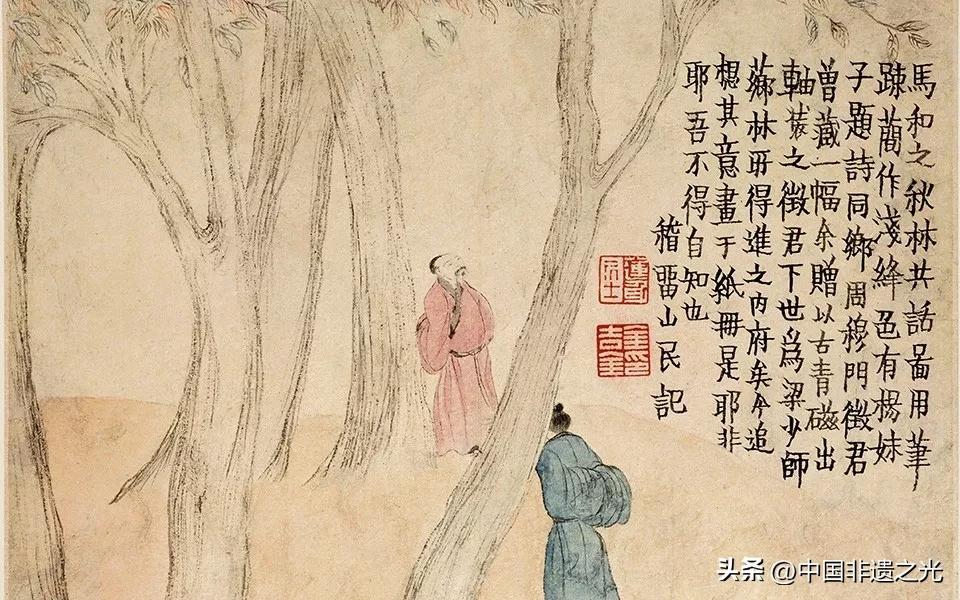 馬和之秋林共話啚用筆
踈蕳作淺絳色有楊妹
子題詩同鄉周穆門徵君
曽藏一幅余贈以古青磁出
軸裝之徵君下世爲梁少師
薌林所得進之内府矣今追
想其意畫于紙冊是耶非
耶吾不得自知也
稽畱山民記
金吉金印
头条 @中国非遗之光